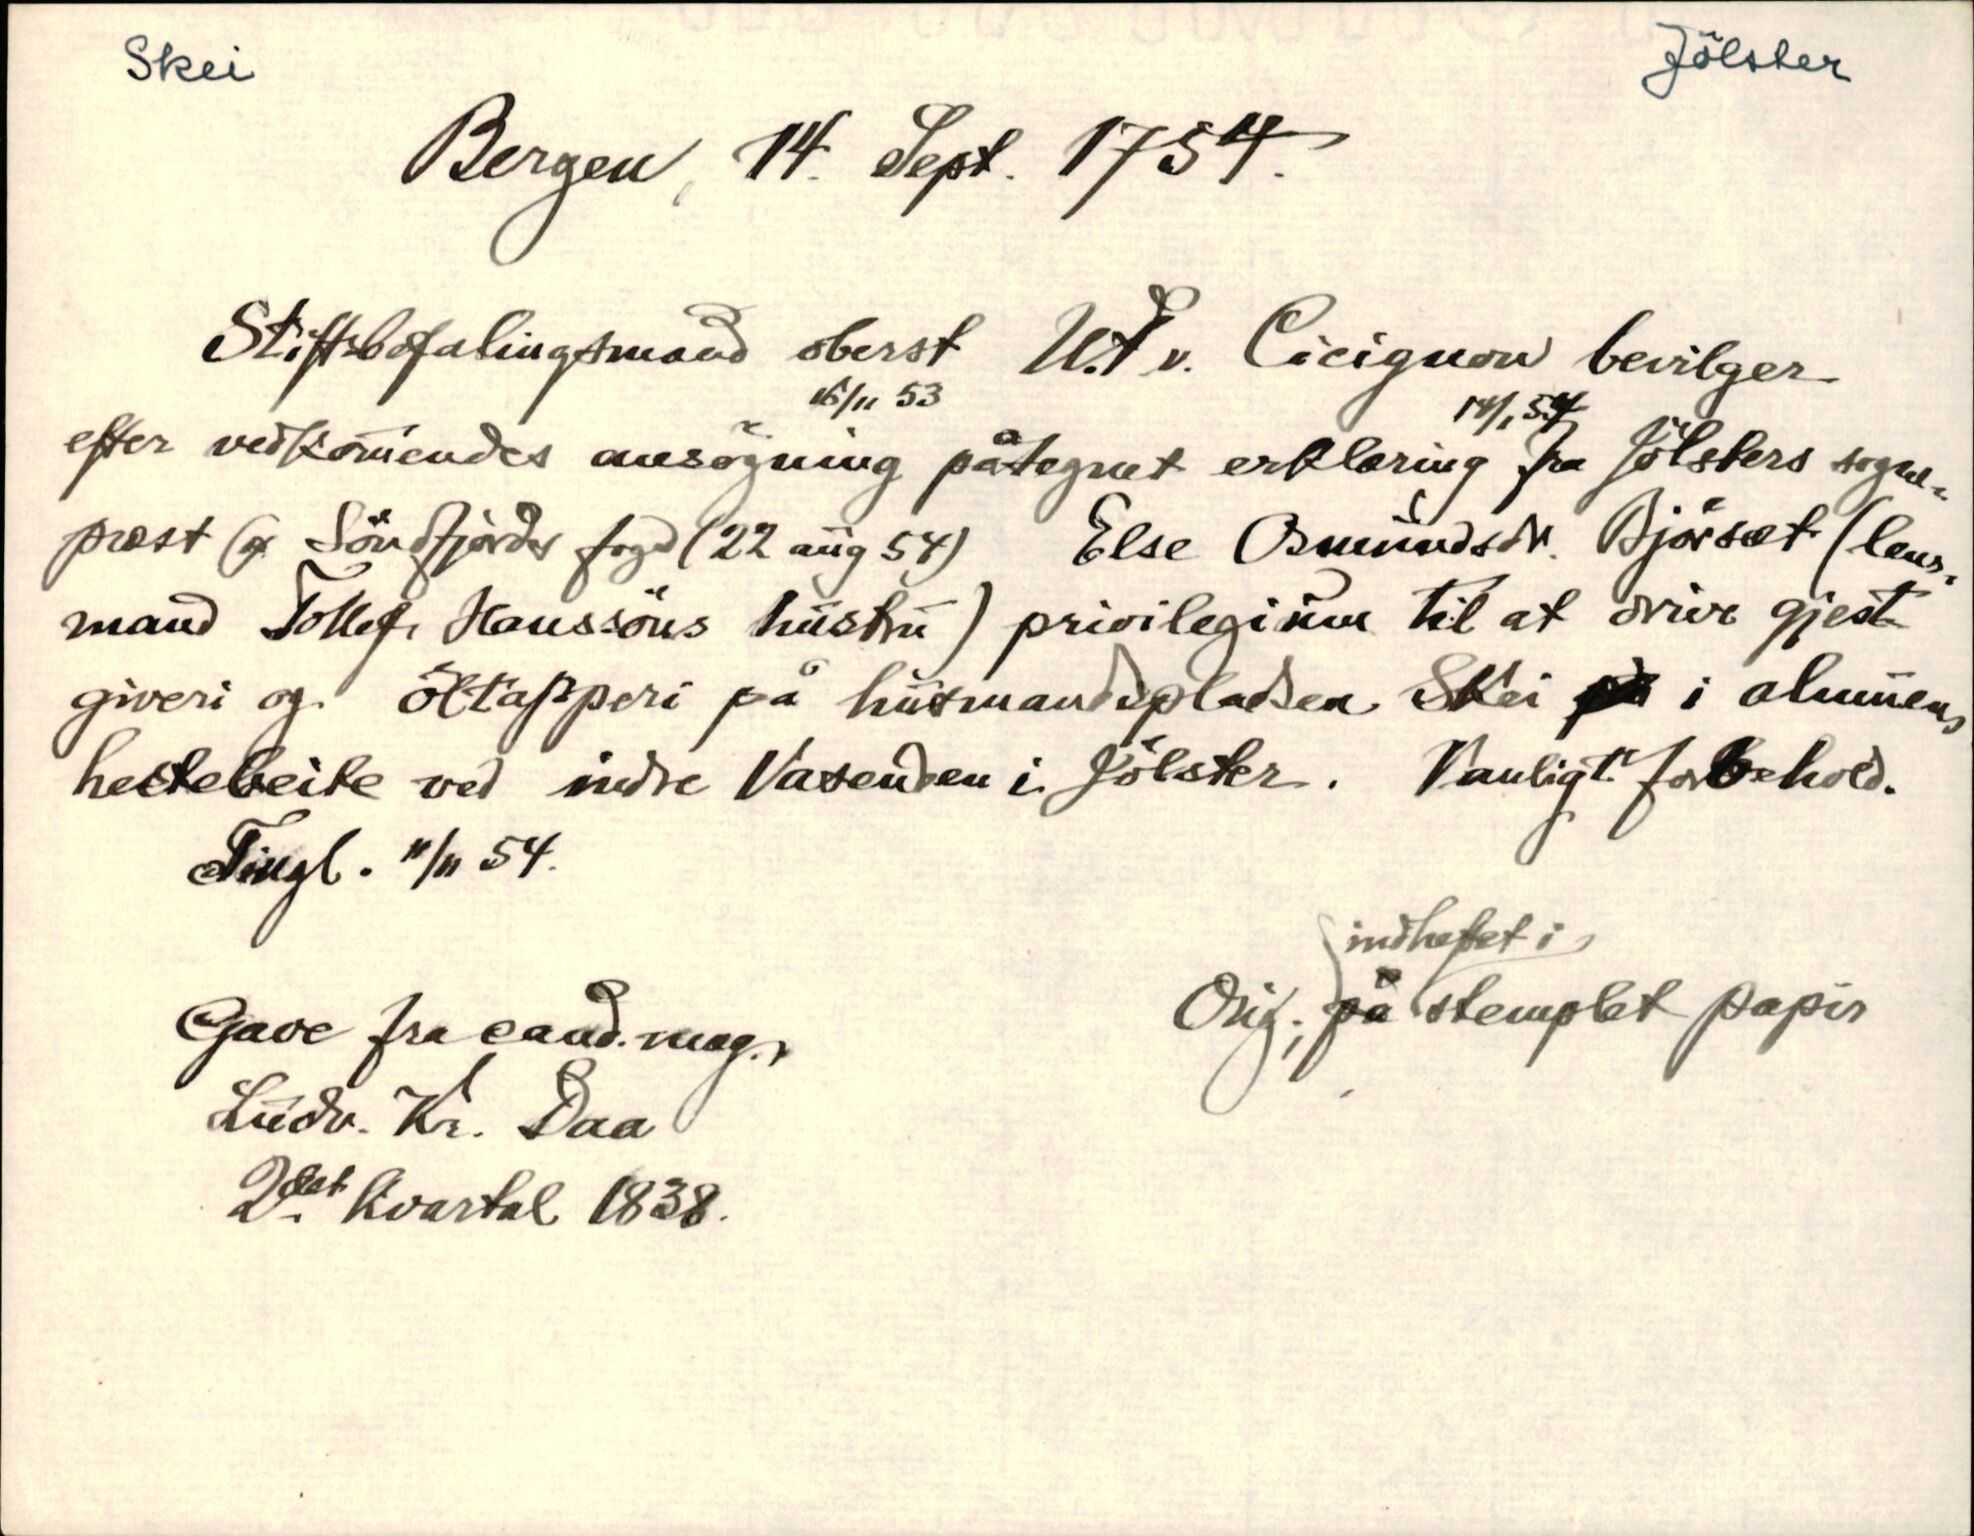 Skei
Jölster
Bergen, 14. Sept. 1754.
Stiftsbefalingsmand oberst U.F. v. Cicignon bevilger
16/11 53 14/1 54
efter vedkom̄endes ansögning påtegnet erklæring fra Jölsters sogne-
prest og Söndfjords fogd (22 aug 54) Else Osmundsdr. Bjørset (lens-
mand Tollef Hanssöns hustru) privilegium til at drive gjest-
giveri og öltapperi på husmandspladsen Skei i alm̄uens
hestebeite ved indre Vasenden i Jölster. Vanligt forbehold.
Tingl. 11/11 54.
indheftet i
Orig. på stemplet papir
Gave fra cand. mag.
Ludv. Kr. Daa
2det kvartal 1838.